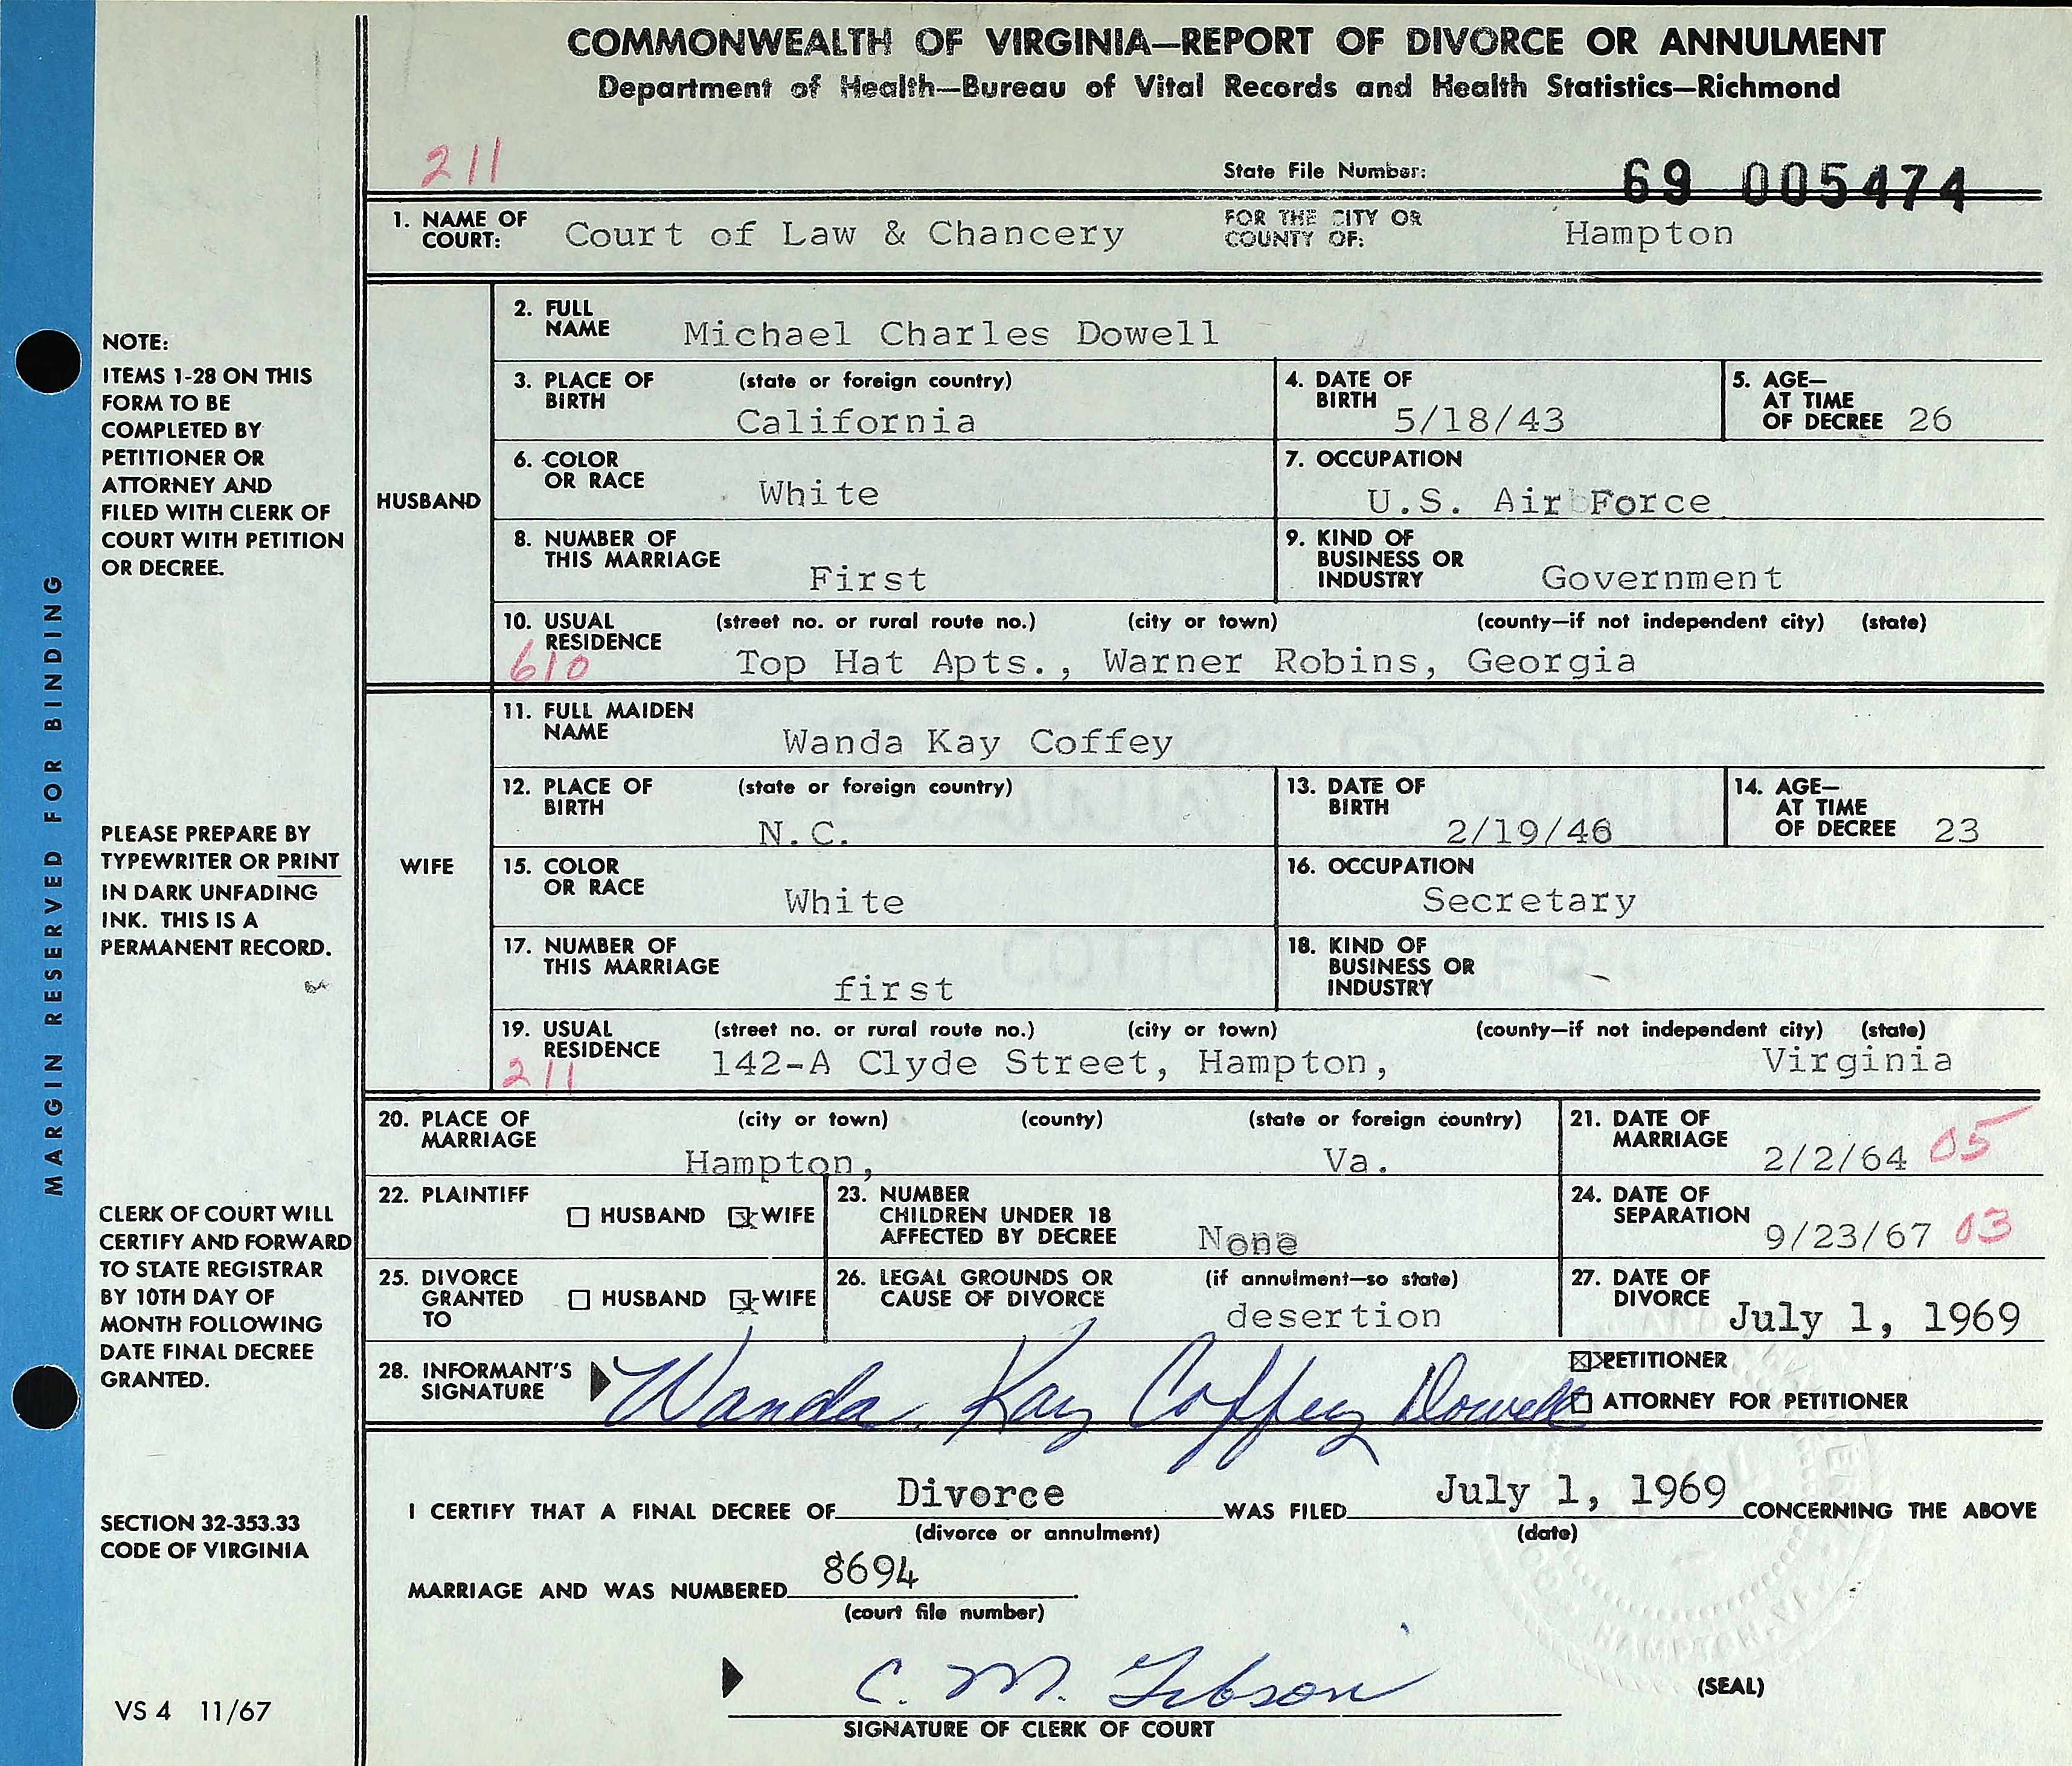 COMMONWEALTH OF VIRGINIA—REPORT OF DIVORCE OR ANNULMENT
Department of Health—Bureau of Vital Records and Health Statistics—Richmond
211
State File Number: 69 005474
1. NAME OF COURT: Court of Law & Chancery FOR THE CITY OR COUNTY OF: Hampton
HUSBAND
2. FULL NAME Michael Charles Dowell
3. PLACE OF BIRTH (state or foreign country) California
4. DATE OF BIRTH 5/18/43
5. AGE— AT TIME OF DECREE 26
6. COLOR OR RACE White
7. OCCUPATION U.S. Air Force
8. NUMBER OF THIS MARRIAGE First
9. KIND OF BUSINESS OR INDUSTRY Government
10. USUAL RESIDENCE (street no. or rural route no.) (city or town) (county—if not independent city) (state)
610 Top Hat Apts., Warner Robins, Georgia
WIFE
11. FULL MAIDEN NAME Wanda Kay Coffey
12. PLACE OF BIRTH (state or foreign country) N.C.
13. DATE OF BIRTH 2/19/46
14. AGE— AT TIME OF DECREE 23
15. COLOR OR RACE White
16. OCCUPATION Secretary
17. NUMBER OF THIS MARRIAGE first
18. KIND OF BUSINESS OR INDUSTRY
19. USUAL RESIDENCE (street no. or rural route no.) (city or town) (county—if not independent city) (state)
211 142-A Clyde Street, Hampton, Virginia
20. PLACE OF MARRIAGE (city or town) (county) (state or foreign country)
Hampton, Va.
21. DATE OF MARRIAGE 2/2/64 05
22. PLAINTIFF HUSBAND WIFE
23. NUMBER CHILDREN UNDER 18 AFFECTED BY DECREE None
24. DATE OF SEPARATION 9/23/67 03
25. DIVORCE GRANTED TO HUSBAND WIFE
26. LEGAL GROUNDS OR CAUSE OF DIVORCE (if annulment—so state) desertion
27. DATE OF DIVORCE July 1, 1969
28. INFORMANT'S SIGNATURE Wanda Kay Coffey Dowell
PETITIONER
ATTORNEY FOR PETITIONER
I CERTIFY THAT A FINAL DECREE OF Divorce WAS FILED July 1, 1969 CONCERNING THE ABOVE
(divorce or annulment) (date)
MARRIAGE AND WAS NUMBERED 8694
(court file number)
C. M. Gibson
SIGNATURE OF CLERK OF COURT
(SEAL)
HAMPTON, VA.
MARGIN RESERVED FOR BINDING
NOTE:
ITEMS 1-28 ON THIS
FORM TO BE
COMPLETED BY
PETITIONER OR
ATTORNEY AND
FILED WITH CLERK OF
COURT WITH PETITION
OR DECREE.
PLEASE PREPARE BY
TYPEWRITER OR PRINT
IN DARK UNFADING
INK. THIS IS A
PERMANENT RECORD.
CLERK OF COURT WILL
CERTIFY AND FORWARD
TO STATE REGISTRAR
BY 10TH DAY OF
MONTH FOLLOWING
DATE FINAL DECREE
GRANTED.
SECTION 32-353.33
CODE OF VIRGINIA
VS 4 11/67